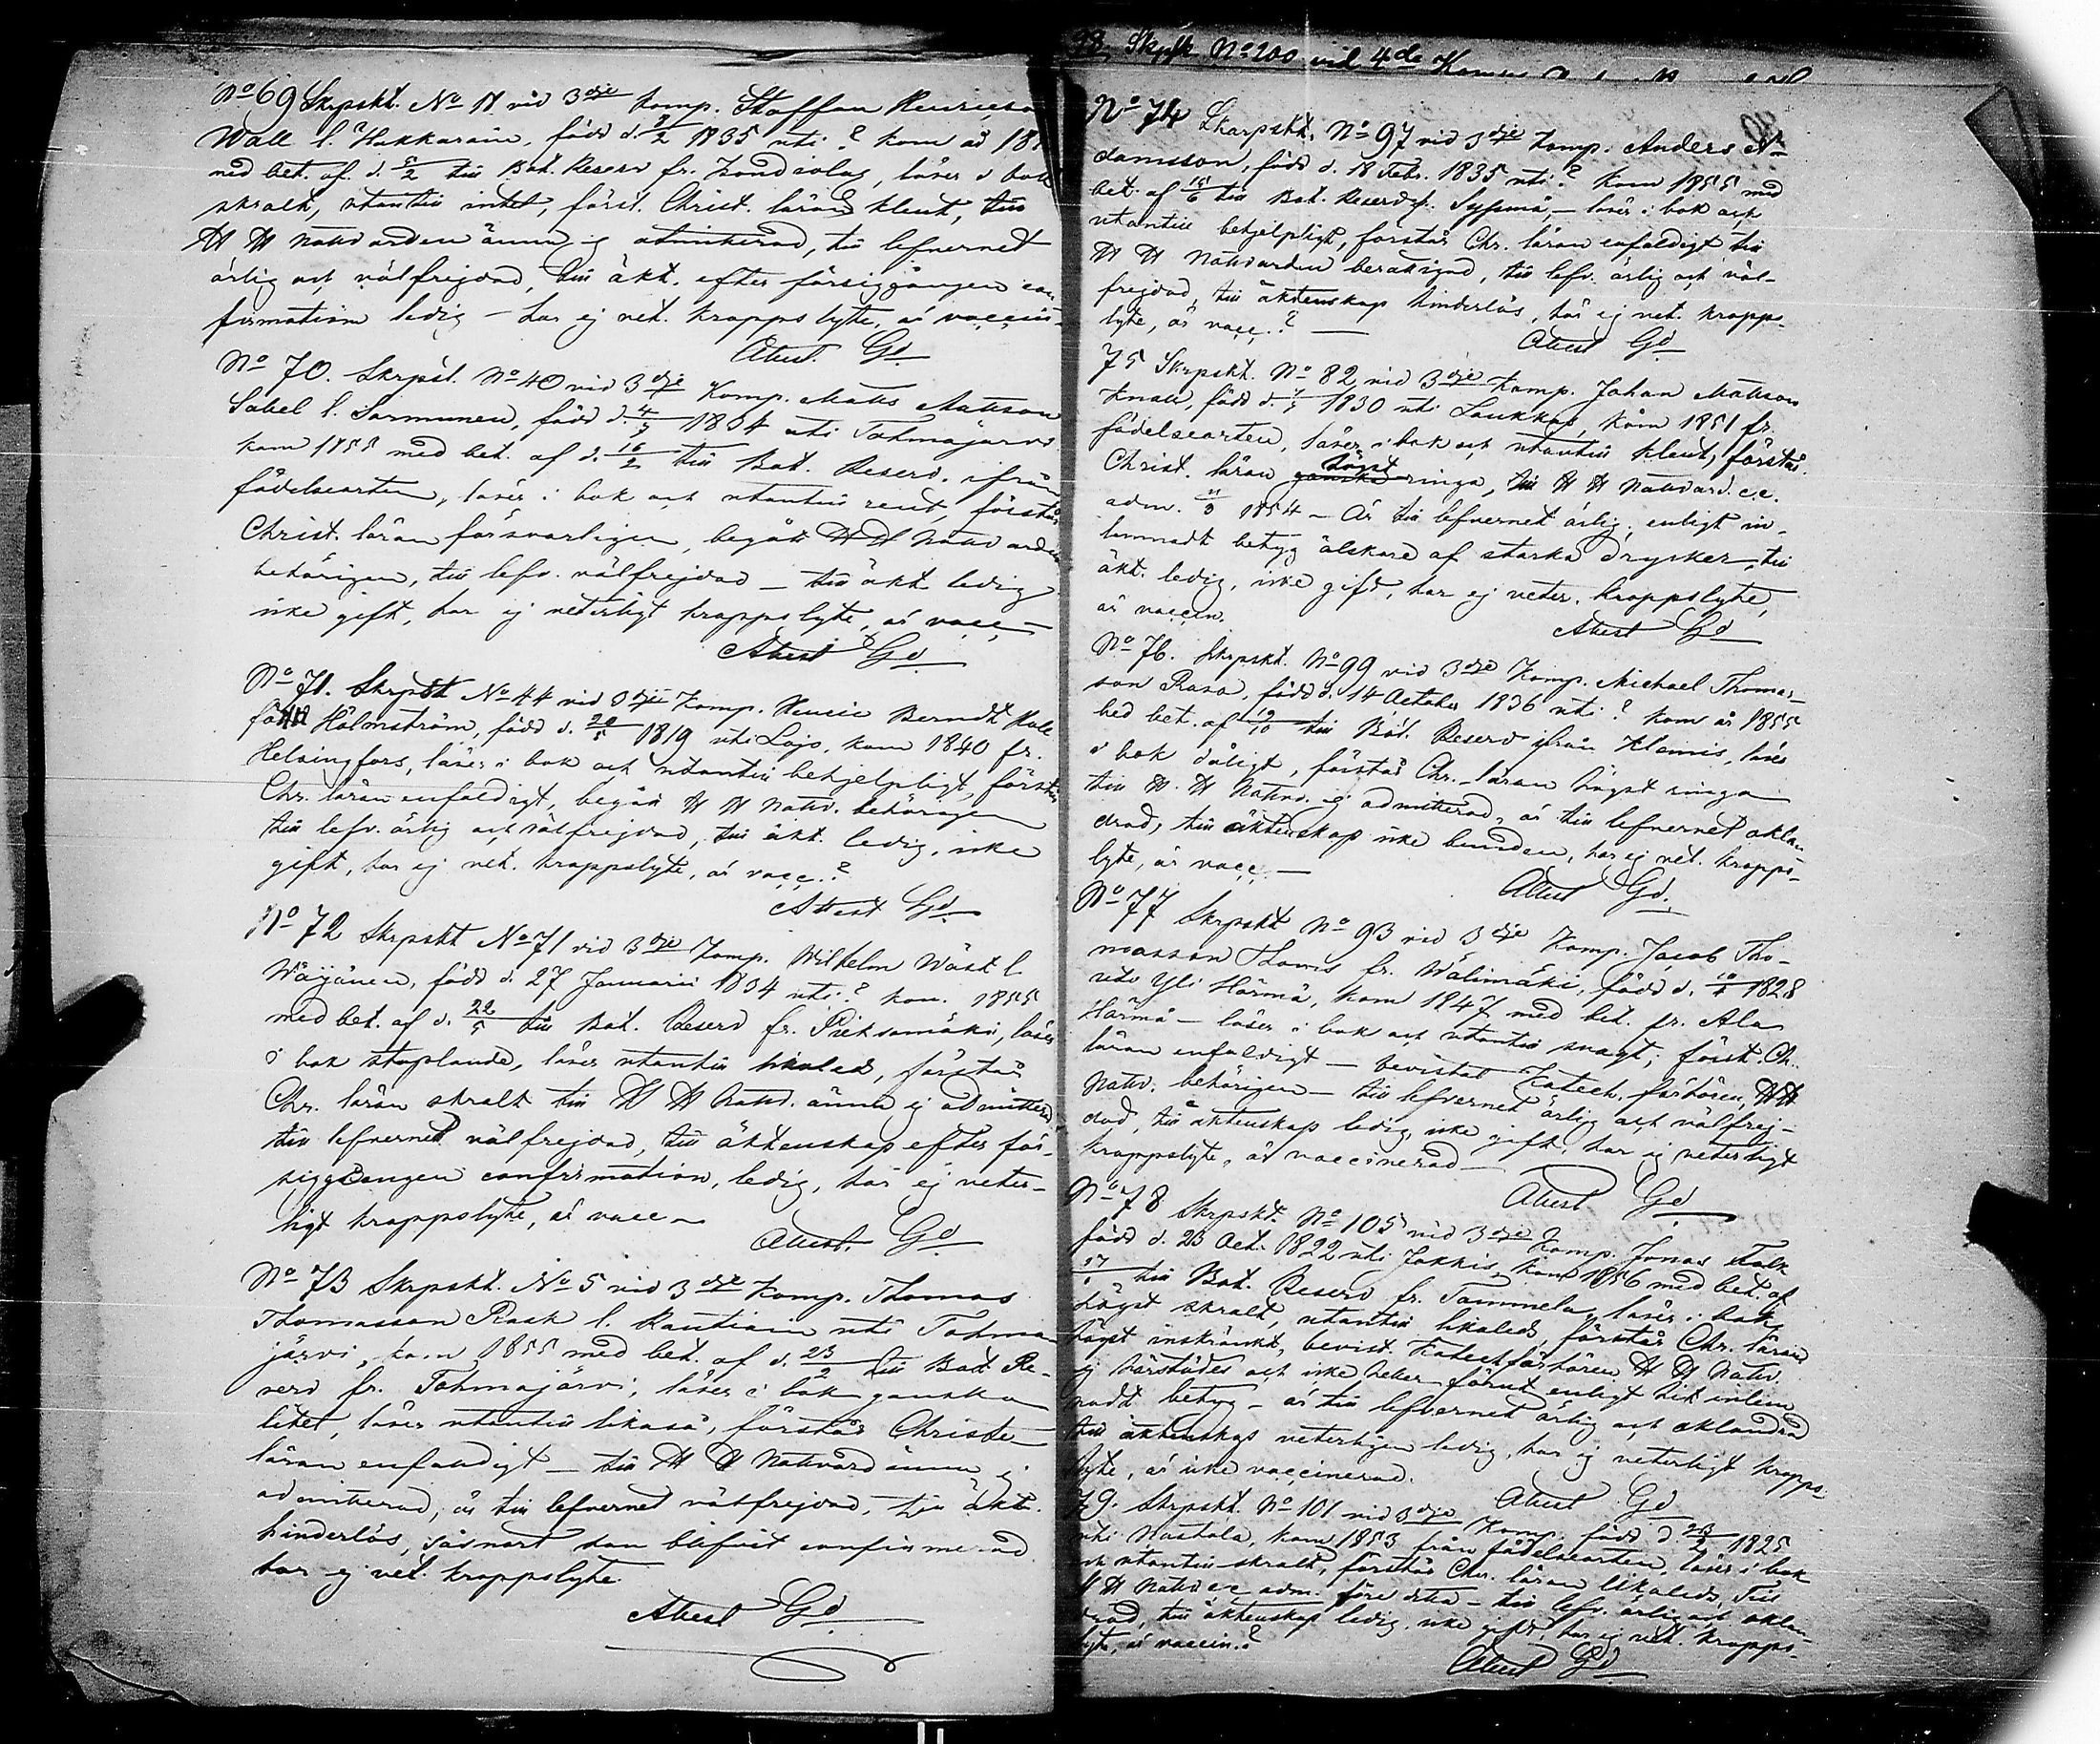 No 69 Skrpskt. No 11 vid 3dje Komp. Staffan Henricson
Wall l. Hakkarain, född d. 2/2 1835 uti? kom år 18
med bet. af d. 5/2 till Bat. Reserv fr. Kondiolas, läser i bok
skralt, utantill intet, förit. Christ. läran klent, till
H H Nattvarden ännu ej admitterad, till lefvernet
ärlig och välfrejdad, till äkt. efter försiggången con-
firmation ledig – har ej vet. kroppslyte, är vaccin-
Attest. Gd
No 70. Skrpskt. No 40 vid 3dje Komp. Matts Mattsson
Sabel l. Sormunen, född d. 4/7 1834 uti Tohmajärvi
kom 1855 med bet. af d. 16/2 till Bat. Reserv. ifrån
födelseorten, läser i bok och utantill rent, förstår
Christ. läran försvarligen, begått H H Nattvarden
behörigen, till lefv. välfrejdad – till äkt. ledig
icke gift, har ej veterligt kroppslyte, är vacc –
Attest Gd
No 71. Skrpskt No 44 vid 3dje Komp. Henric Berndt
Holmström, född d. 20/5 1819 uti Lojo, kom 1840 fr.
Helsingfors, läser i bok och utantill behjelpligt, förstår
Chr. läran enfaldigt, begått H H Nattv. behörigen
till lefv. ärlig och välfrejdad, till äkt. ledig, icke
gift, har ej vet. kroppslyte, är vacc.?
Attest Gd
No 72 Skrpskt No 71 vid 3dje Komp. Wilhelm Wäst l.
Wäyänen, född d. 27 Januarii 1834 uti? kom. 1855
med bet. af d. 22/5 till Bat. Reserv fr. Pieksamäki, läser
i bok staplande, läser utantill likaled, förstår
Chr. läran skralt till H H Nattv. ännu ej admitterad,
till lefvernet välfrejdad, till äktenskap efter för-
siggången confirmation, ledig, har ej veter-
ligt kroppslyte, är vacc –
Attest. Gd
No 73 Skrpskt. No 5 vid 3dje Komp. Thomas
Thomasson Rask l. Rautiain uti Tohma-
järvi, kom 1855 med bet. af d. 23/2 till Bat Re-
serv fr. Tohmajärvi, läser i bok ganska
litet, läser utantill likaså, förstår Christe-
läran enfaldigt – till H H Nattvard ännu ej
admitterad, är till lefvernet välfrejdad, till äkt.
hinderlös, såsnart han blifvit confirmerad
har ej vet. kroppslyte.
Attest Gd
98. Skpskt. No 100 vid 4de Komp
No 74 Skarpskt. No 97 vid 3dje Komp. Anders A-
damsson, född d. 18 Febr. 1835 uti? kom 1855 med
bet. af 15/6 till Bat. Reserv fr. Sysmä, – läser i bok och
utantill behjelpligt, förstår Chr. läran enfaldigt till
H H Nattvarden berättigad, till lefv. ärlig och väl-
frejdad, till äktenskap hinderlös, har ej vet. kropps-
lyte, är vacc.? –
Attest Gd
75 Skrpskt. No 82 vid 3dje Komp. Johan Mattsson
född d. 1830 uti Laukkas, kom 1851 fr.
födelseorten, läser i bok och utantill klent, förstår
Christ. läran ganska högst ringa, till H H Nattvard. e.c.
adm. 1854 – Är till lefvernet ärlig, enligt in-
lemnadt betyg älskare af starka drycker, till
äkt. ledig, icke gift, har ej veter. kroppslyte,
är vaccin.
Attest Gd
No 76. Skrpskt. No 99 vid 3dje Komp. Michael Thomas-
son Rasa, född d. 14 October 1836 uti? kom år 1855
bed bet. af 19/10 till Bat. Reserv ifrån Klemis, läser
i bok dåligt, förstår Chr. läran högst ringa
till H. H Nattv. ej admitterad, är till lefvernet oklan-
drad, till äktenskap icke bunden, har ej vet. kropps-
lyte, är vacc. –
Attest Gd.
No 77 Skrpskt No 93 vid 3dje Komp. Jacob Tho-
masson Thoms fr. Wälimäki, född d. 10/4 1828
uti Yli Härmä, kom 1847 med bet. fr. Ala
Härmä – läser i bok och utantill svagt; först. Ch.
läran enfaldigt – bevistat Katech. förhören, H H
Nattv. behörigen – till lefvernet ärlig och välfrej-
dad, till äktenskap ledig, icke gift, har ej veterligt
kroppslyte, är vaccinerad –
Attest Gd
No 78 Skrpskt. No 105 vid 3dje Komp. Jonas Falk
född d. 23 Oct. 1822 uti Jokkis, kom 1856 med bet. af
till Bat. Reserv fr. Tammela, läser i bok
högst skralt, utantill likaleds, förstår Chr. läran
högst inskränkt, bevist. Katechförhören, H H Nattv.
ej härstädes och icke heller förut enligt hit inlem-
nadt betyg – är till lefvernet ärlig och oklandrad
till äktenskap veterligen ledig, har ej veterligt kropps-
lyte, är icke vaccinerad.
Attest Gd
79. Skrpskt. No 101 vid 3dje Komp. född d. 23/2 1825
uti Nastola, kom 1853 från födelseorten, läser i bok
och utantill skralt, förstår Chr. läran likaleds, Till
H H Nattv e c adm. före – till lefv. ärlig och oklan-
drad, till äktenskap ledig, icke gift, har ej vet. kropps-
lyte, är vaccin.?
Attest Gd